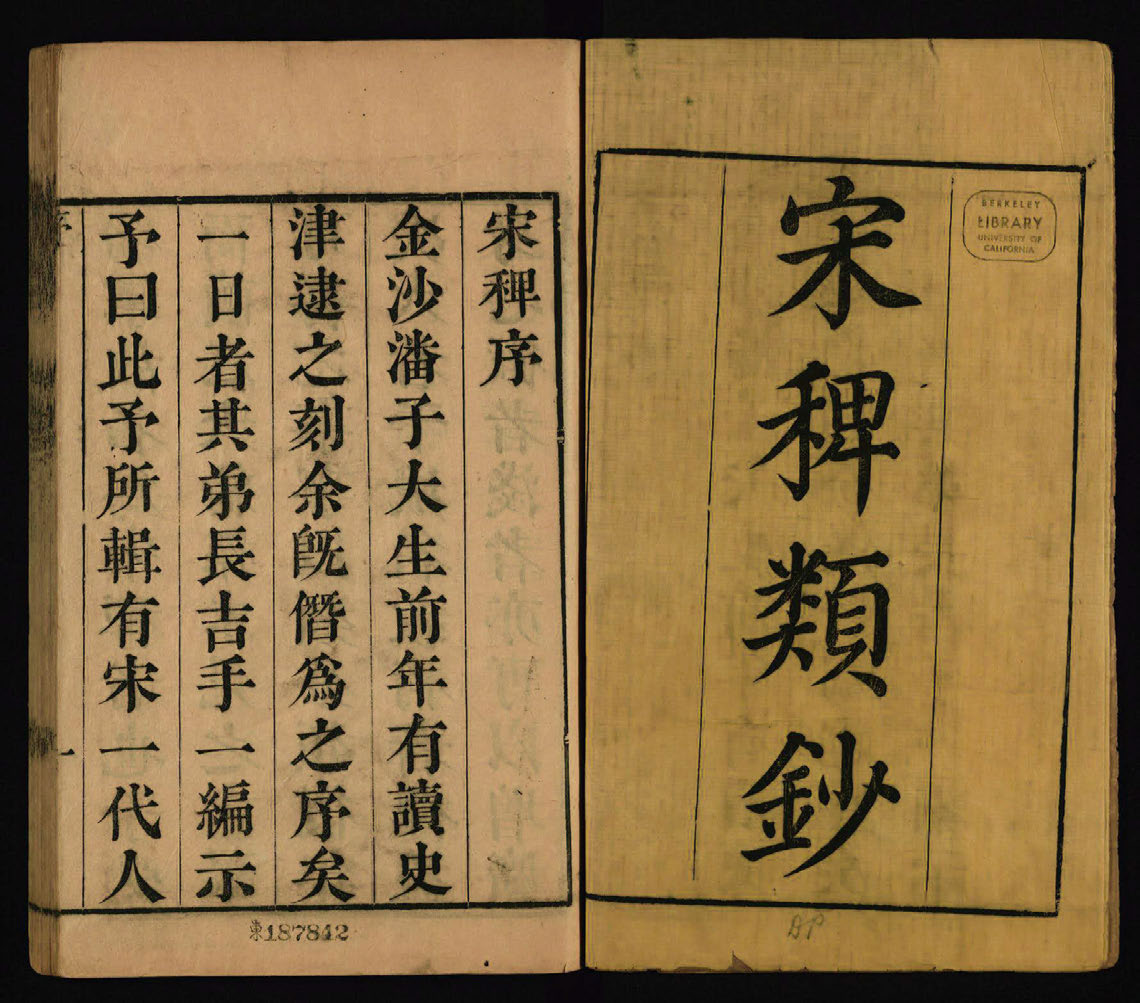 宋稗類鈔
BERKELEY
LIBRARY
UNIVERSITY OF
CALIFORNIA
宋稗序
金沙潘子大生前年有讀史
津逮之刻余旣僭爲之序矣
一日者其弟長吉手一編示
予曰此予所輯有宋一代人
一
東187842